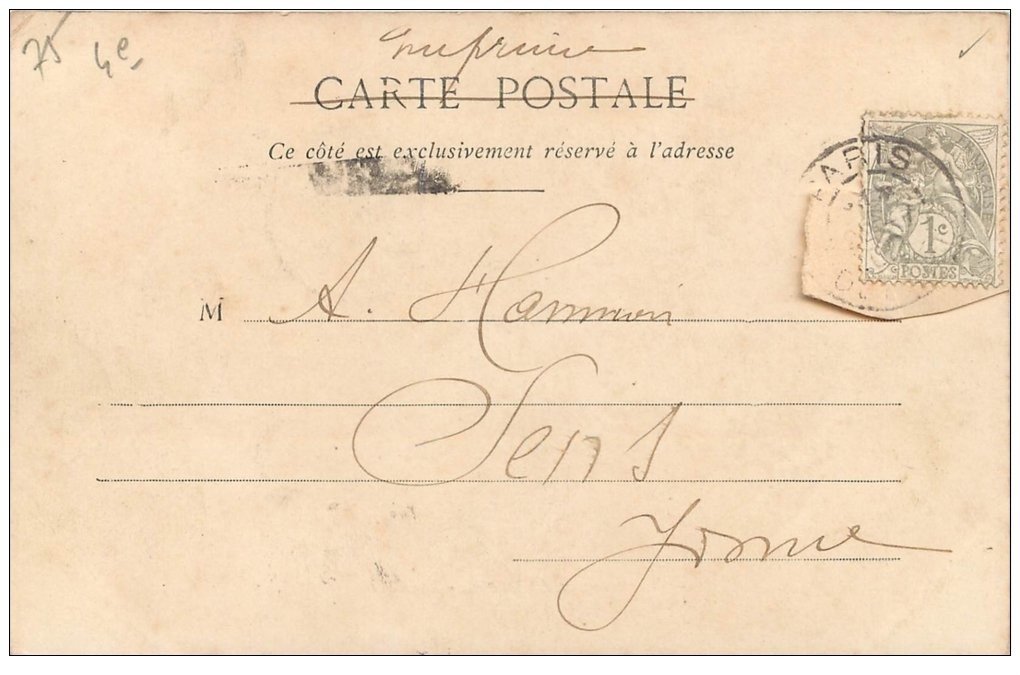 75 4e
Imprimé
CARTE POSTALE
Ce côté est exclusivement réservé à l'adresse
PARIS
1c
POSTES
M A.
Sens
Yonne